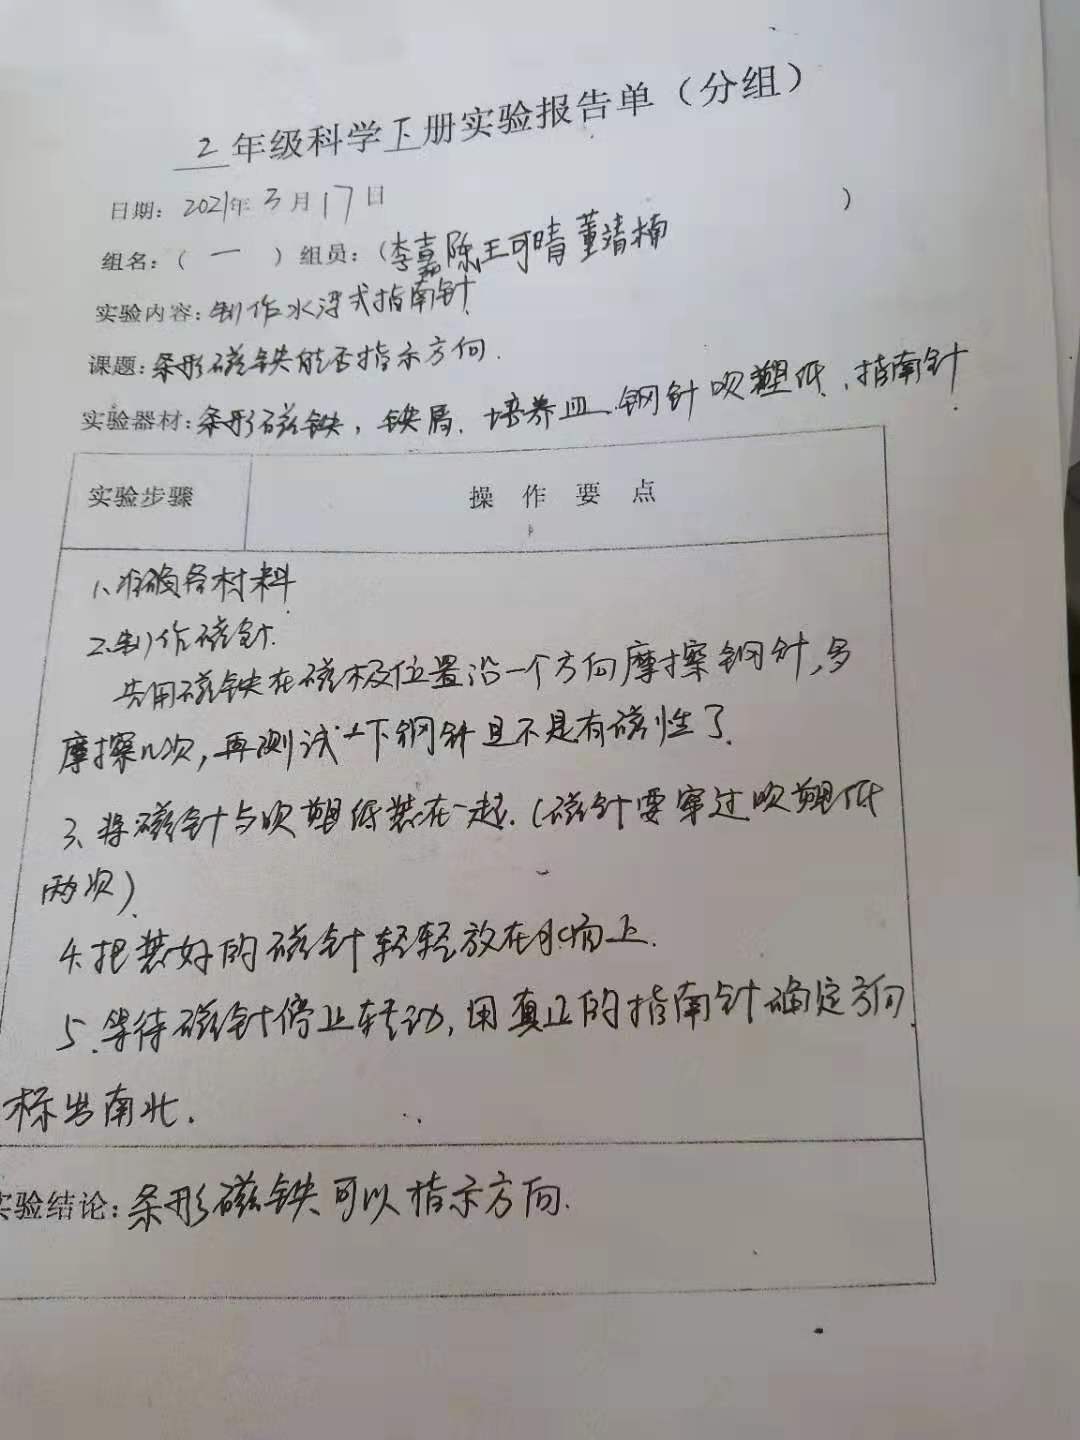 2年级科学下册实验报告单（分组）
日期：2021年3月17日
组名：（一）组员：（李嘉陈王可晴董靖楠）
实验内容：制作水浮式指南针
课题：条形磁铁能否指示方向.
实验器材：条形磁铁，铁屑、培养皿、钢针吹塑纸、指南针
实验步骤 操作要点
1、准备材料
2.制作磁针.
先用磁铁在磁极位置沿一个方向摩擦钢针，多
摩擦几次，再测试一下钢针是不是有磁性了.
3、将磁针与吹塑纸装在一起.（磁针要穿过吹塑纸
两次）.
4.把装好的磁针轻轻放在水面上.
5.等待磁针停止转动，用真正的指南针确定方向.
标出南北.
实验结论：条形磁铁可以指示方向.